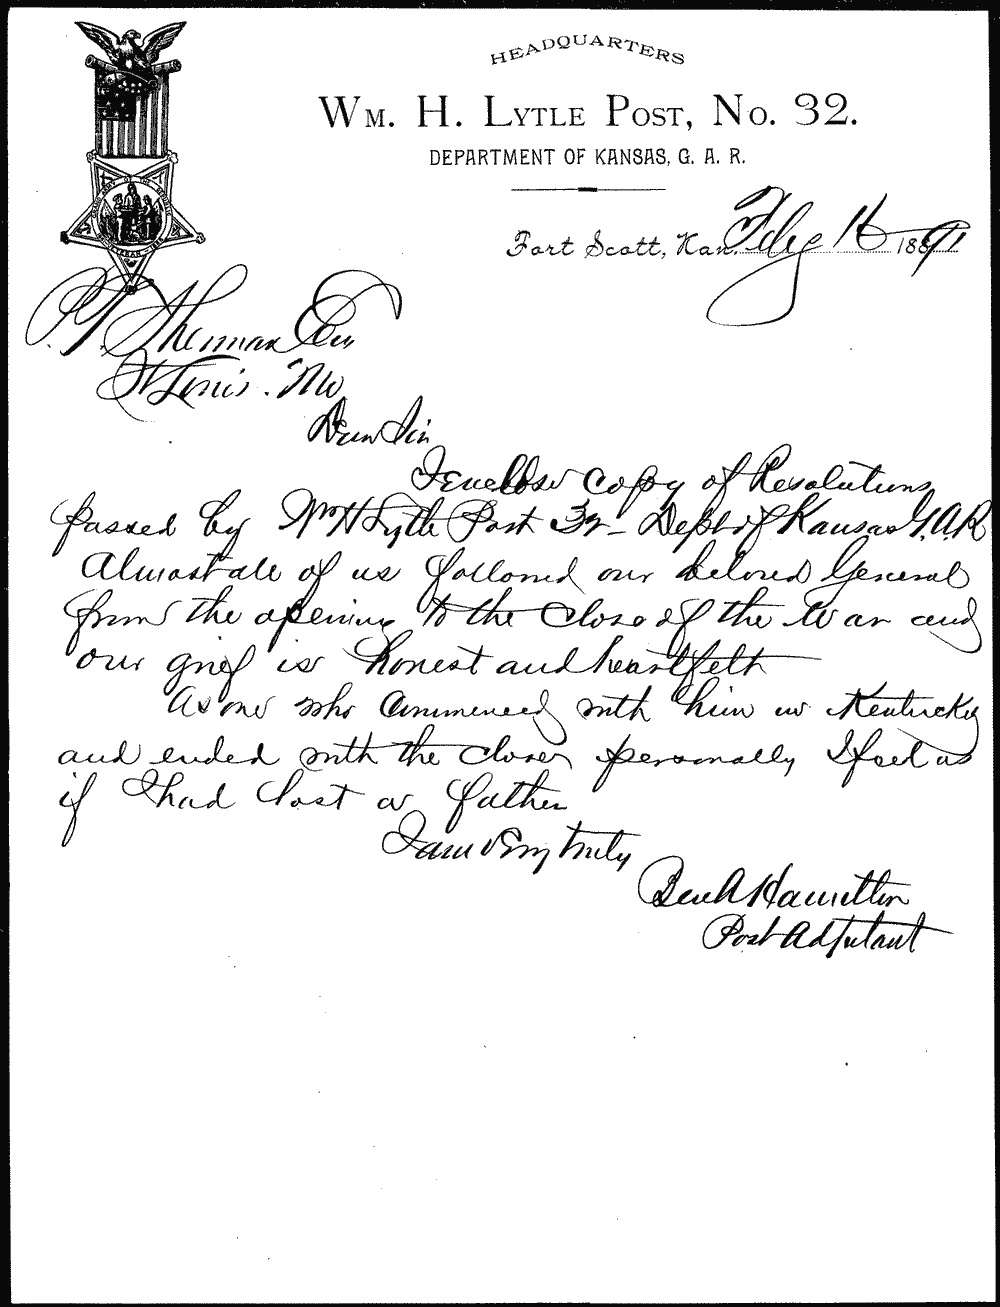 HEADQUARTERS
WM. H. LYTLE POST, NO. 32.
DEPARTMENT OF KANSAS, G. A. R.
Fort Scott, Kan. Feby 16 1891
P. T. Sherman Esq
St Louis. Mo
Dear Sir
I enclose copy of Resolutions
passed by Wm H Lytle Post 32 - Dept of Kansas G.A.R
Almost all of us followed our beloved General
from the opening to the close of the War and
our grief is honest and heartfelt
As one who commenced with him in Kentucky
and ended with the close personally I feel as
if I had lost a father
I am very truly
Ben A Hamilton
Post Adjutant